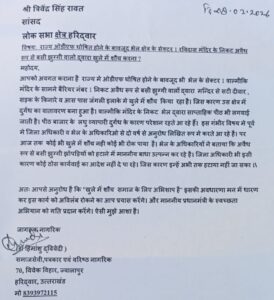 श्री त्रिवेंद्र सिंह रावत
सांसद
लोक सभा क्षेत्र हरिद्वार
विषयः राज्य ओडीएफ घोषित होने के बावजूद भेल क्षेत्र के सेक्टर 1 रविदास मंदिर के निकट अवैध
रूप से बसी झुग्गी वालों द्वारा खुले में शौंच करना ?
महोदय,
आपको अवगत कराना है राज्य में ओडीएफ घोषित होने के बावजूद भी भेल के सेक्टर 1 वाल्मीकि
मंदिर के सामने बैरियर नंबर 1 निकट अवैध रूप से बसी झुग्गी वालों द्वारा मन्दिर से सटी दीवार,
सड़क के किनारे व आस पास जंगली इलाके में खुले में शौंच किया जा रहा है। जिस कारण उक्त क्षेत्र में
दुर्गंध का वातावरण बना हुआ है। वाल्मीकि मंदिर के निकट भेल द्वारा साप्ताहिक पीठ भी लगवाई
जाती है। पीठ बाजार के लघु व्यापारी दुर्गंध के कारण परेशान रहते आ रहे है। इस गंभीर विषय में पूर्व
में जिला अधिकारी व भेल के अधिकारिओ से दो वर्ष से अनुरोध लिखित रूप से करते आ रहे है। पर
आज तक कोई भी खुले में शौंच नहीं कोई भी रोक पाया है। भेल के अधिकारीओं ने बताया कि अवैध
रूप से बसी झुग्गी झोंपड़ियों को हटाने में माननीय बाधा उत्पन्न कर रहे है। जिला अधिकारी भी इसी
कारण कोई ठोस कार्यवाई का आदेश नहीं दे पा रहे। जिस कारण इन्हें अभी तक हटाया नहीं जा सका है।
अतः आपसे अनुरोध है कि "खुले में शौंच समाज के लिए अभिशाप है" इसकी अवधारणा मन में धारण
कर इस कार्य को अविलंब रोकने का आप प्रयास करेंगे। और माननीय प्रधानमंत्री के स्वच्छता
अभियान को गति प्रदान करेंगे। ऐसी मुझे आशा है।
जागरूक नागरिक
(हिमांशु द्विवेदी)
समाजसेवी,पत्रकार एवं वरिष्ठ नागरिक
70, विवेक विहार, ज्वालापुर
हरिद्वार, उत्तराखंड
मो 8393972115